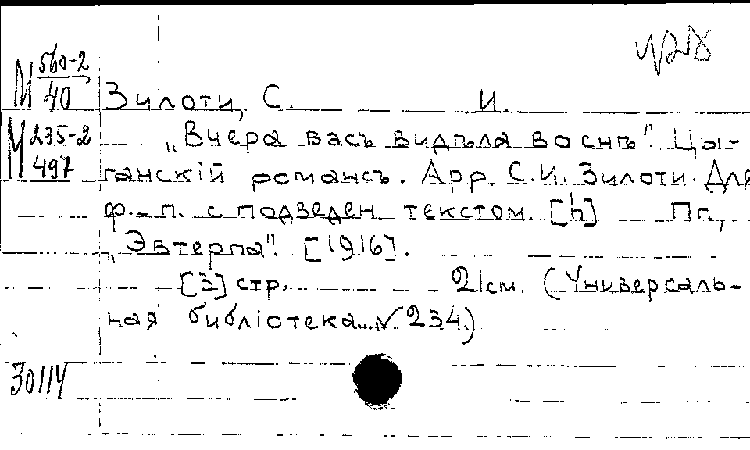 М 560-2
40
Зилоти, С. И.
М 235-2
497
„Вчера васъ видѣла во снѣ". Цы-
ганскій романсъ. Арр. С.И. Зилоти. Для
ф.-п. с подведен. текстом. [h] Пг.,
„Эвтерпа". [1916].
[3] стр. 21 см. (Универсаль-
ная библіотека. N 234.)
30114